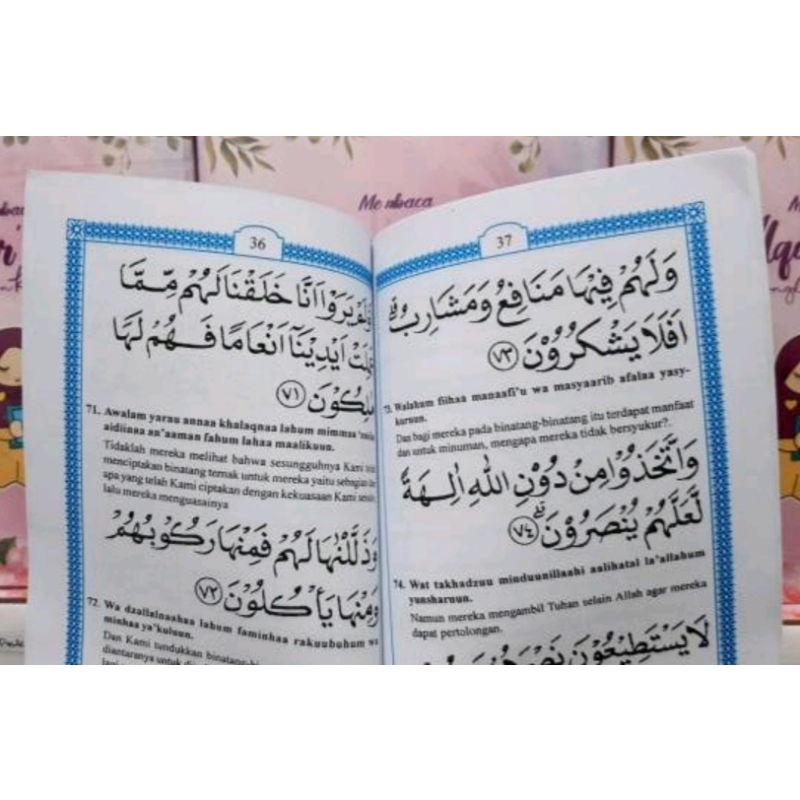 36
اَوَلَمْ يَرَوْا اَنَّا خَلَقْنَا لَهُمْ مِّمَّا
عَمِلَتْ اَيْدِيْنَآ اَنْعَامًا فَهُمْ لَهَا
مٰلِكُوْنَ ﴿٧١﴾
71. Awalam yarau annaa khalaqnaa lahum mimmaa
aidiinaa an'aaman fahum lahaa maalikuun.
Tidaklah mereka melihat bahwa sesungguhnya Kami
menciptakan binatang ternak untuk mereka yaitu sebagian
apa yang telah Kami ciptakan dengan kekuasaan Kami
lalu mereka menguasainya
وَذَلَّلْنٰهَا لَهُمْ فَمِنْهَا رَكُوْبُهُمْ
وَمِنْهَا يَأْكُلُوْنَ ﴿٧٢﴾
72. Wa dzallalnaahaa lahum faminhaa rakuubuhum wa
minhaa ya'kuluun.
Dan Kami tundukkan
diantaranya untuk
37
وَلَهُمْ فِيْهَا مَنَافِعُ وَمَشَارِبُۗ
اَفَلَا يَشْكُرُوْنَ ﴿٧٣﴾
73. Walahum fiihaa manaafi'u wa masyaarib afalaa yasy-
kuruun.
Dan bagi mereka pada binatang-binatang itu terdapat manfaat
dan untuk minuman, mengapa mereka tidak bersyukur?.
وَاتَّخَذُوْا مِنْ دُوْنِ اللّٰهِ اٰلِهَةً
لَّعَلَّهُمْ يُنْصَرُوْنَۗ ﴿٧٤﴾
74. Wat takhadzuu minduunillaahi aalihatal la'allahum
yunsharuun.
Namun mereka mengambil Tuhan selain Allah agar mereka
dapat pertolongan.
لَا يَسْتَطِيْعُوْنَ نَصْرَهُمْ